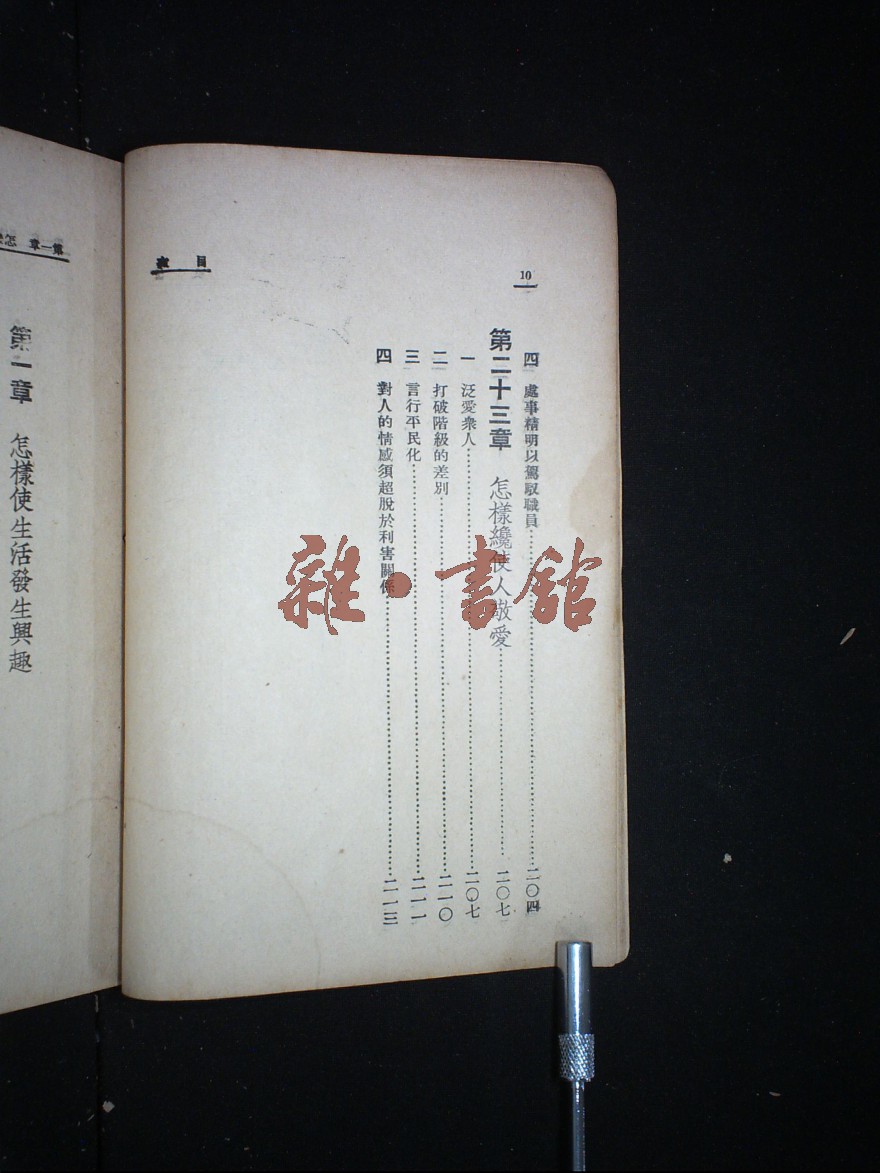 10
目次
四 處事精明以駕馭職員……二〇四
第二十三章 怎樣纔使人敬愛……二〇七
一 泛愛衆人……二〇七
二 打破階級的差別……二一〇
三 言行平民化……二一一
四 對人的情感須超脫於利害關係……二一三
第一章 怎
第一章 怎樣使生活發生興趣
雜·書館